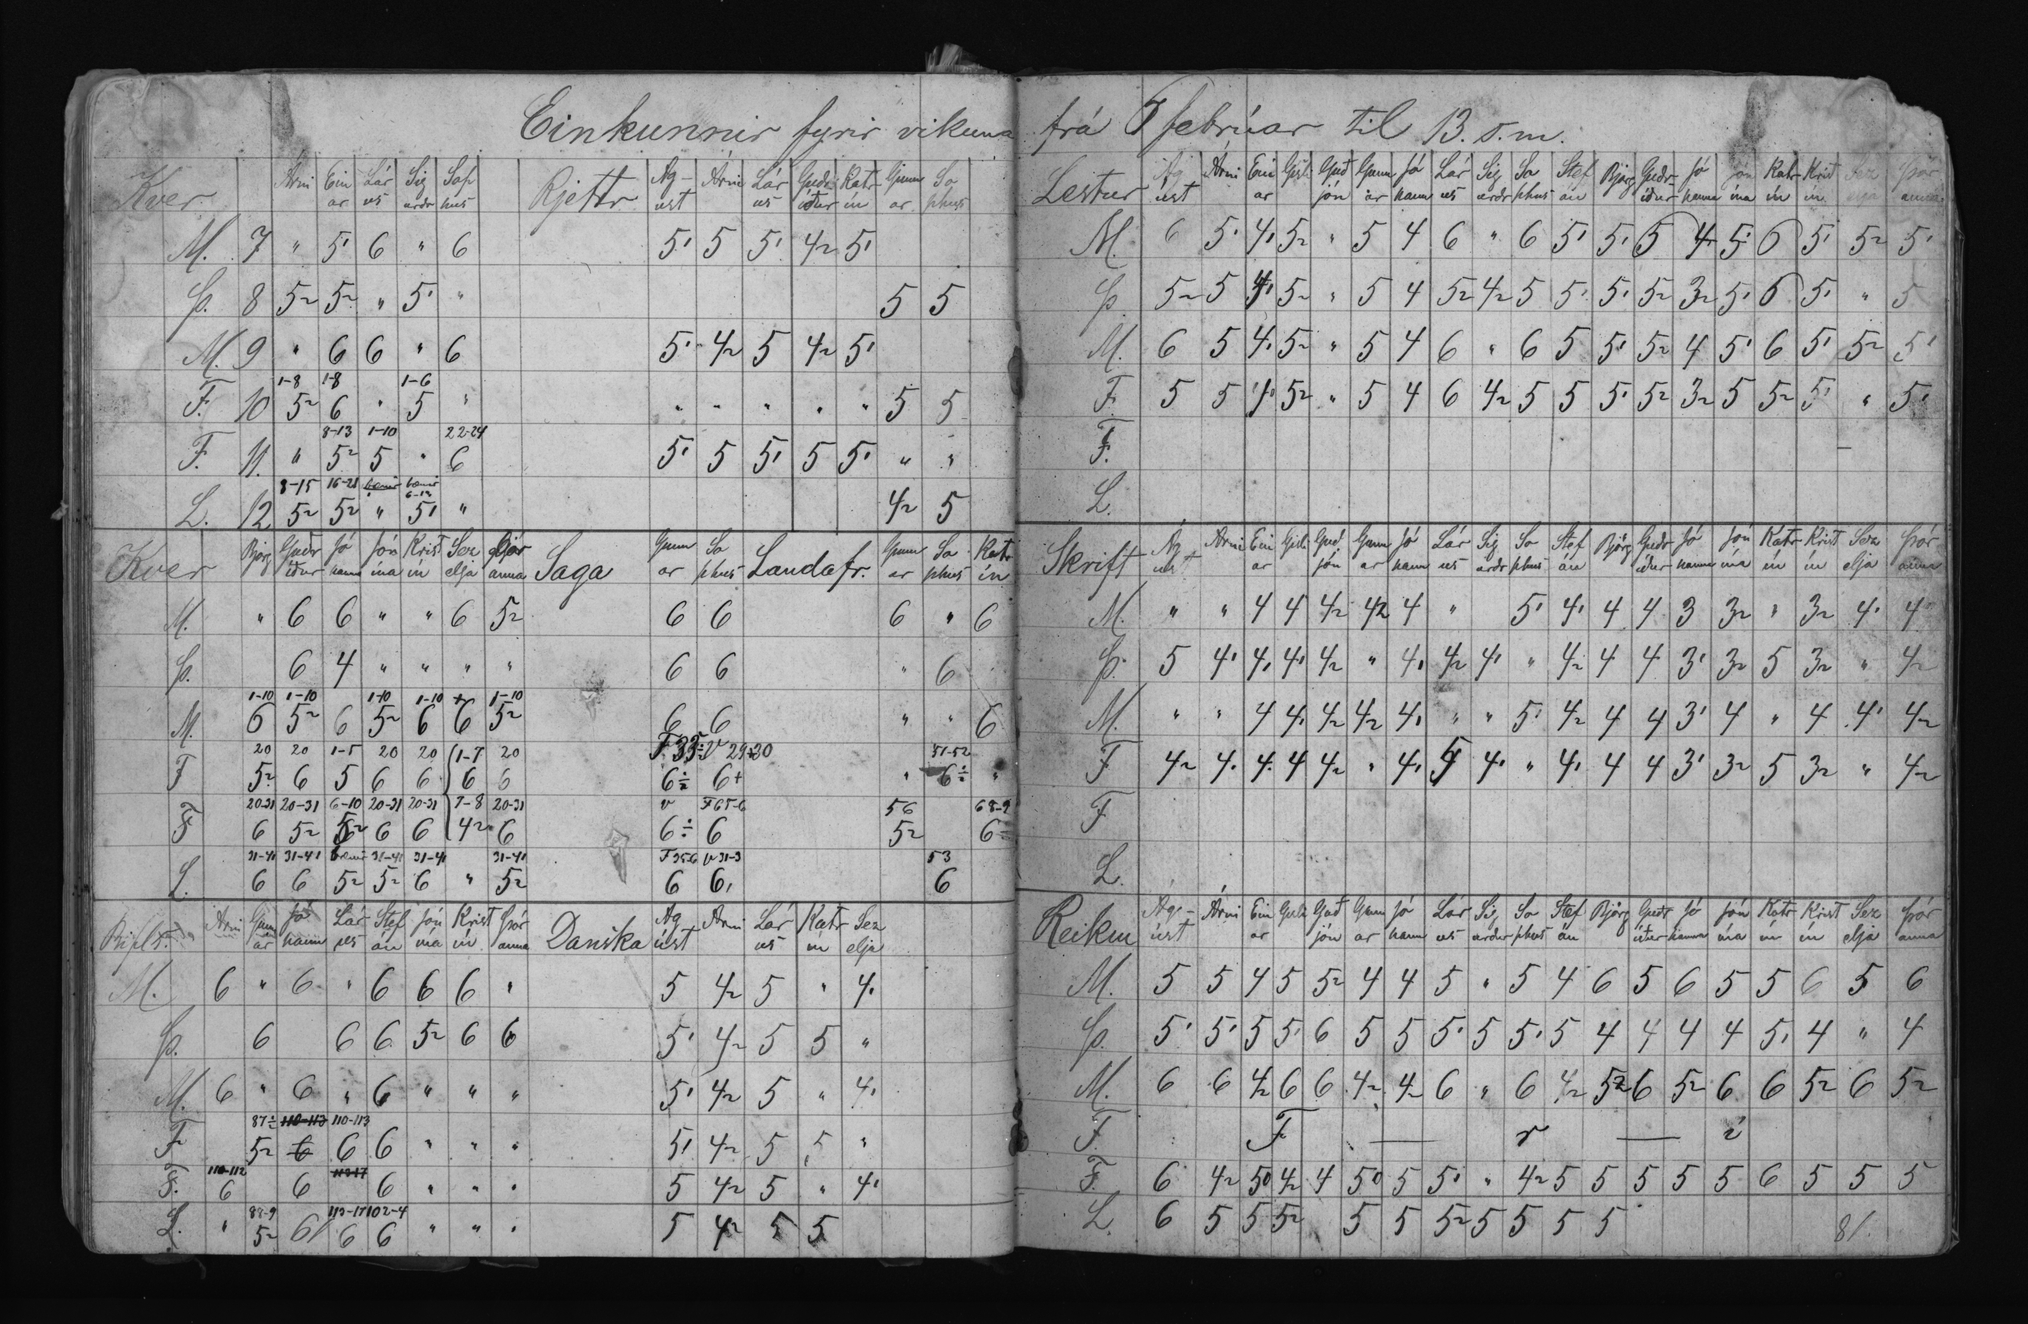 Einkunnir fyrir vikuna frá 6 febrúar til 13. s.m.
Kver Árni Einar Lárus Sigurdr Sophus
M. 7 " 5' 6 " 6
Þ. 8 52 52 " 5' "
M. 9 " 6 6 " 6
1-8 1-8 1-6
F. 10 52 6 " 5 "
8-13 1-10 22-24
F. 11. " 52 5 " 6
8-15 16-21 bænir bænir 6-12
L. 12 52 52 " 5' "
Rjettr Ágúst Árni Lárus Gudridur Katrin Gunnar Sophus
5' 5 5' 42 5'
5 5
5' 42 5 42 5'
" " " " " 5 5
5' 5 5' 5 5' " "
42 5
Kver Björg Gudridur Jóhanna Jónina Kristin Sezelja Þóranna
M. " 6 6 " " 6 52
Þ. 6 4 " " " "
1-10 1-10 1-10 1-10 + 1-10
M. 6 52 6 52 6 6 52
20 20 1-5 20 20 1-7 20
F 52 6 5 6 6 6 6
20-31 20-31 6-10 20-31 20-31 7-8 20-31
F 6 52 52 6 6 42 6
31-41 31-41 bænir 31-41 31-41 31-41
L. 6 6 52 52 6 " 52
Saga Gunnar Sophus Landafr. Gunnar Sophus Katrin
6 6 6 " 6
6 6 " 6
6 6 " " 6
29-30 51-52
6÷ 6+ " 6÷ "
v F65-6 56 68-9
6÷ 6 52 6
F35-6 v31-3 53
6 6, 6
Árni Gunnar Jóhann Lárus Stefán Jónina Kristin Þóranna
M. 6 " 6 " 6 6 6 "
Þ. 6 6 6 52 6 6
M. 6 " 6 " 6 " " "
87÷ 110-113 110-113
F 52 6 6 6 " " "
110-112 113-17
F. 6 6 6 " " "
88-9 113-17 102-4
L. " 52 6 6 " " "
Danska Ágúst Árni Lárus Katrin Sezelja
5 42 5 " 4'
5' 42 5 5 "
5' 42 5 " 4'
5' 42 5 5 "
5 42 5 " 4'
5 42 5 5
Lestur Ágúst Árni Einar Gisli Gudjón Gunnar Jóhann Lárus Sigurdr Sophus Stefán Björg Gudridur Jóhanna Jónina Katrin Kristin Sezelja Þóranna
M. 6 5' 4' 52 " 5 4 6 " 6 5' 5' 5 4 5' 6 5' 52 5'
Þ. 52 5 4' 52 " 5 4 52 42 5 5' 5' 52 32 5' 6 5' " 5
M. 6 5 4' 52 " 5 4 6 " 6 5 5' 52 4 5' 6 5' 52 5'
F. 5 5 4' 52 " 5 4 6 42 5 5 5' 52 32 5 52 5' " 5'
F.
L.
Skrift Ágúst Árni Einar Gisli Gudjón Gunnar Jóhann Lárus Sigurdr Sophus Stefán Björg Gudridur Jóhanna Jónina Katrin Kristin Sezelja Þóranna
M. " " 4 4 42 42 4 " 5' 4' 4 4 3 32 " 32 4' 4
Þ. 5 4' 4' 4' 42 " 4' 42 4' " 42 4 4 3' 32 5 32 " 42
M. " " 4 4' 42 42 4' " " 5' 42 4 4 3' 4 " 4 4' 42
F 42 4' 4' 4 42 " 4' 5 4' " 4' 4 4 3' 32 5 32 " 42
F
L.
Reikn Ágúst Árni Einar Gisli Gudjón Gunnar Jóhann Lárus Sigurdur Sophus Stefán Björg Gudridur Jóhanna Jónina Katrin Kristin Sezelja Þóranna
M. 5 5 4 5 52 4 4 5 " 5 4 6 5 6 5 5 6 5 6
Þ. 5' 5' 5 5' 6 5 5 5' 5 5' 5 4 4 4 4 5' 4 " 4
M. 6 6 42 6 6 42 42 6 " 6 42 52 6 52 6 6 52 6 52
F. F — r — i
F. 6 42 5' 42 4 5' 5 5' " 42 5 5 5 5 5 6 5 5 5
L. 6 5 5 52 5 5 52 5 5 5 5
81.